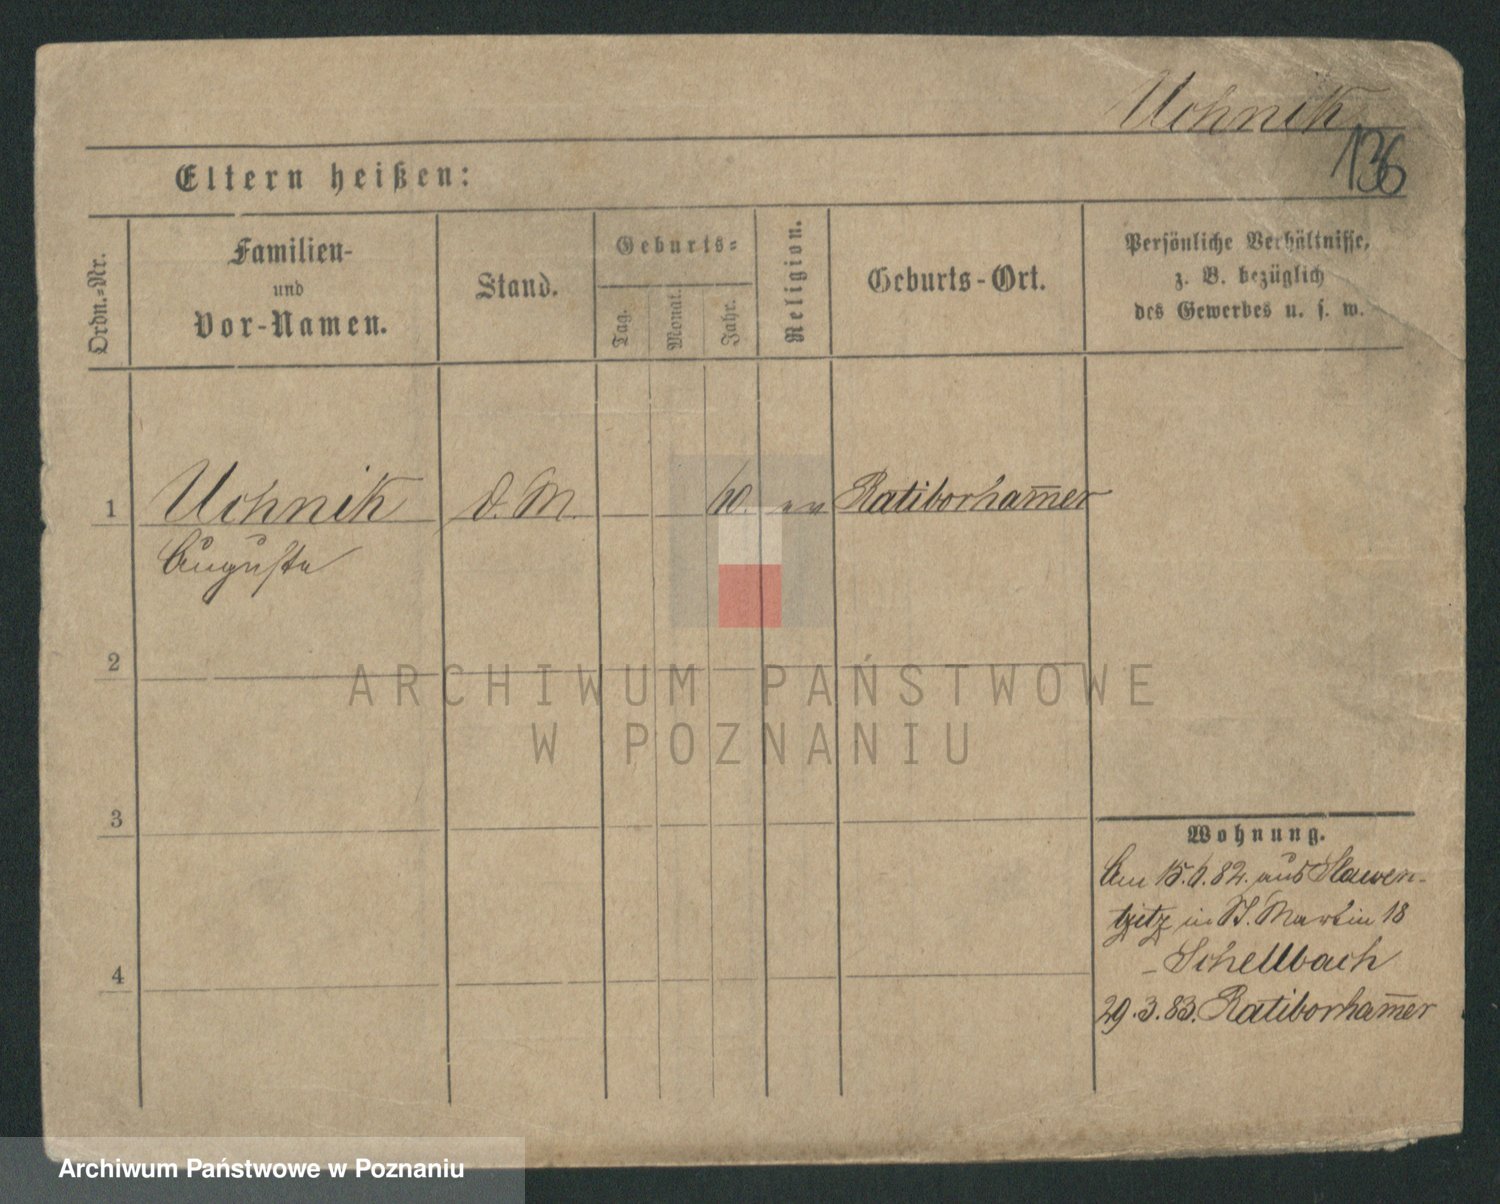 Uchnik
136
Eltern heißen:
Ordn.-Nr.
Familien-
und
Vor-Namen.
Stand.
Geburts-
Tag.
Monat.
Jahr.
Religion.
Geburts-Ort.
Persönliche Verhältnisse,
z. B. bezüglich
des Gewerbes u. s. w.
1 Uchnik D. M. 60. ev Ratiborham̅er
Auguste
2
ARCHIWUM PAŃSTWOWE
W POZNANIU
3
Wohnung.
Am 15.6.82. aus Slawen-
tzitz in St. Martin 18
- Schellbach
4
29.3.83. Ratiborham̅er
Archiwum Państwowe w Poznaniu